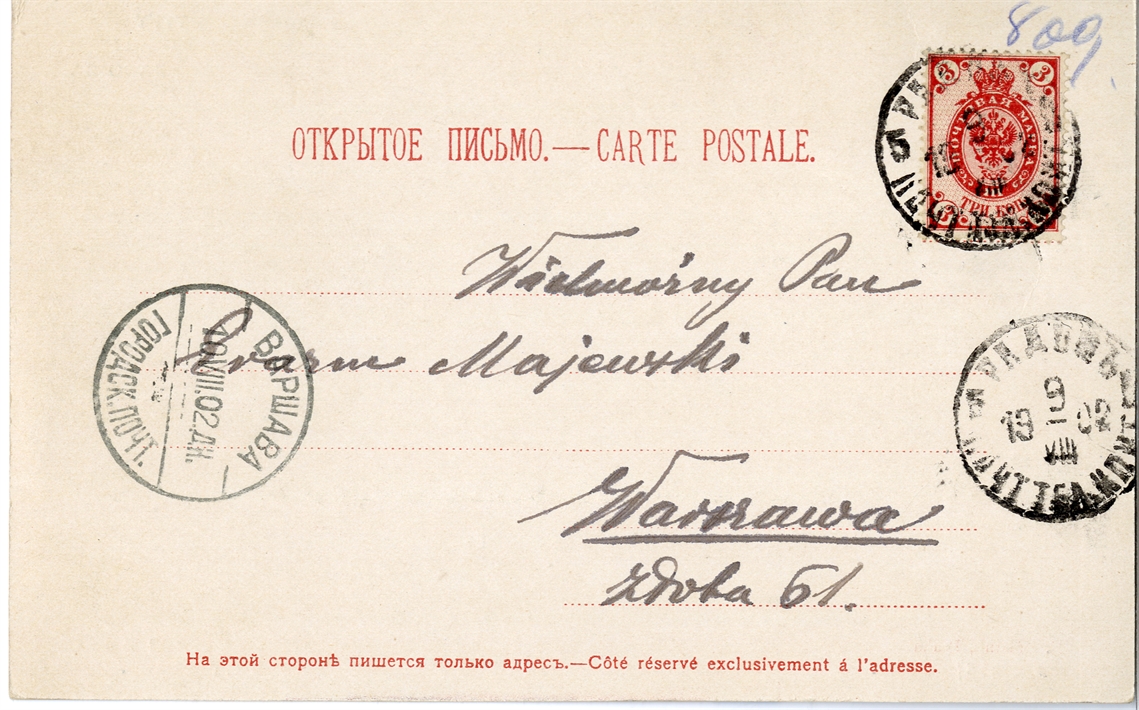 809
3 3
ПОЧТОВАЯ МАРКА
ТРИ КОП
ОТКРЫТОЕ ПИСЬМО.—CARTE POSTALE.
Wielmożny Pan
Majewski
ВАРШАВА
10.VIII.02.Д.Н.
ГОРОДСК.ПОЧТ.
9
19 02
VIII
Warszawa
61.
На этой сторонѣ пишется только адресъ.—Côté réservé exclusivement á l'adresse.